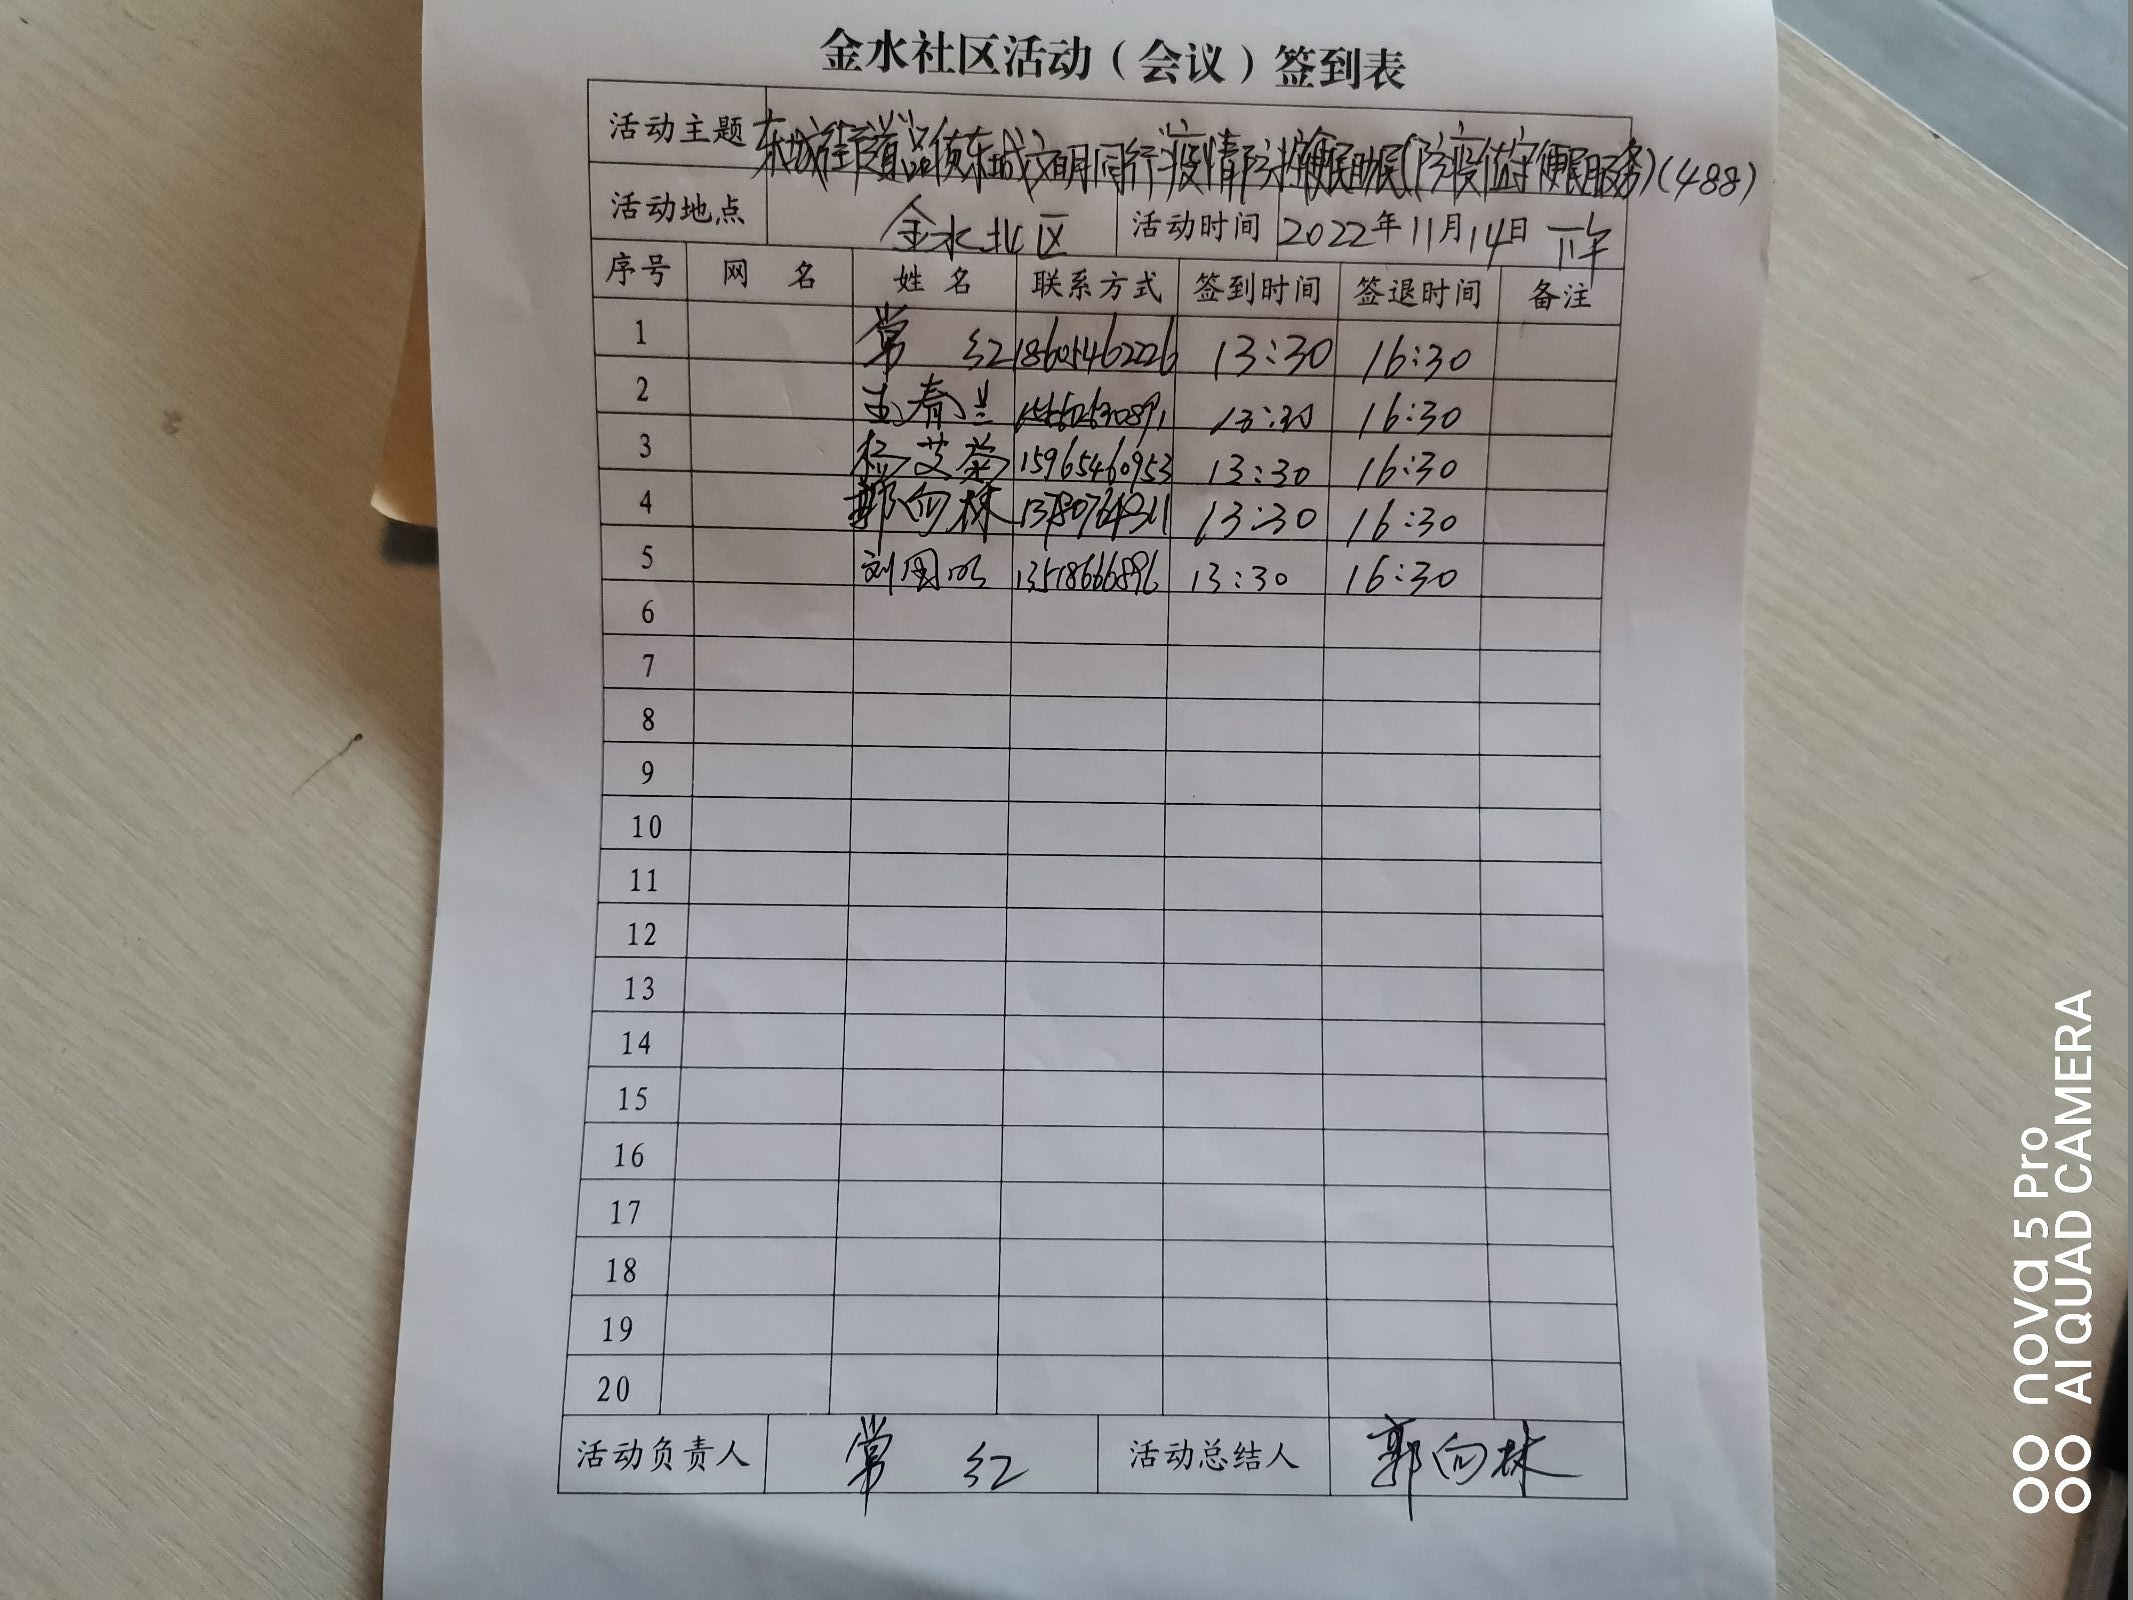 金水社区活动（会议）签到表
活动主题 东城街道品质东城文明同行疫情防控便民助民(防疫值守便民服务)(488)
活动地点 金水北区 活动时间 2022年11月14日 下午
序号 网 名 姓 名 联系方式 签到时间 签退时间 备注
1 常 红 13:30 16:30
2 王春兰 13:30 16:30
3 15965460953 13:30 16:30
4 郭向林 13:30 16:30
5 13:30 16:30
6
7
8
9
10
11
12
13
14
15
16
17
18
19
20
活动负责人 常 红 活动总结人 郭向林
nova 5 Pro
AI QUAD CAMERA